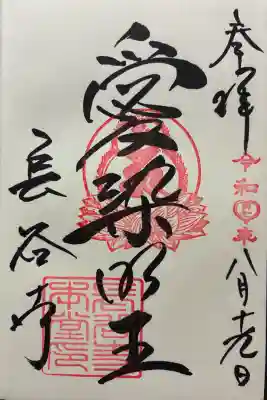 奉拝
令和四年八月十九日
愛染明王
長谷寺